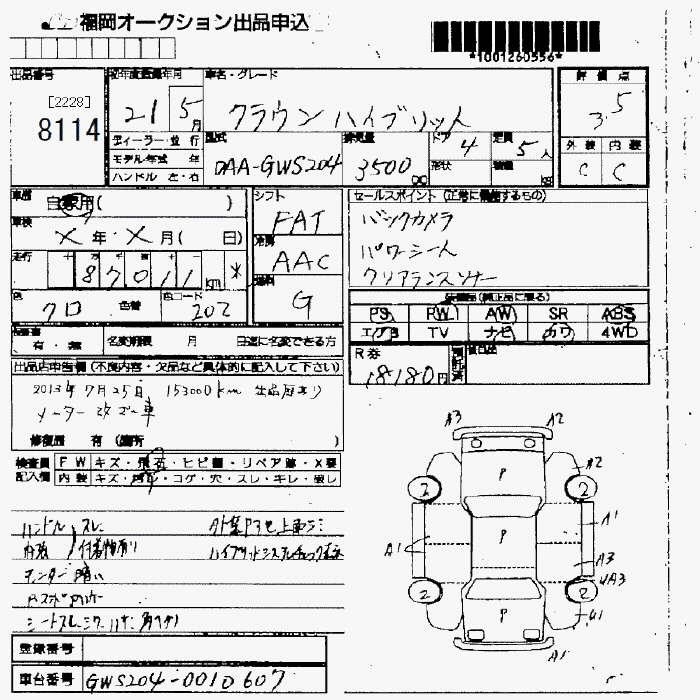 福岡オークション出品申込
*1001260556*
出品番号
[2228]
8114
初年度登録年月
21 5 月
車名・グレード
クラウン ハイブリット
評価点
3.5
ディーラー・並行
モデル年式 年
ハンドル 左・右
型式
DAA-GWS204
排気量
3500 cc
ドア
4
形状
定員
5 人
積量
外装 内装
C C
車歴
自家用( )
車検
X年・X月( 日)
走行
87011 km *
色
クロ
色替
色コード
202
シフト
FAT
冷房
AAC
燃料
G
セールスポイント(正常に機能するもの)
バックカメラ
パワーシート
クリアランスソナー
装備品(純正品に限る)
PS PW AW SR ABS
エアB TV ナビ カワ 4WD
有・無 名変期限 月 日迄に名変できる方
R券
18180円
預託済
出品店申告欄(不良内容・欠品など具体的に記入して下さい)
2013年7月25日 153000km 出品歴あり
メーター改ざん車
修復歴 有(箇所 )
検査員 FW キズ・飛石・ヒビ・リペア跡・X要
記入欄 内装 キズ・コゲ・穴・スレ・キレ・破し
ハンドル スレ
内張
シートスレ
登録番号
車台番号 GWS204-0010607
A3 A2
P A2
2 2
A1 P A1
A3
2 2
P
A1